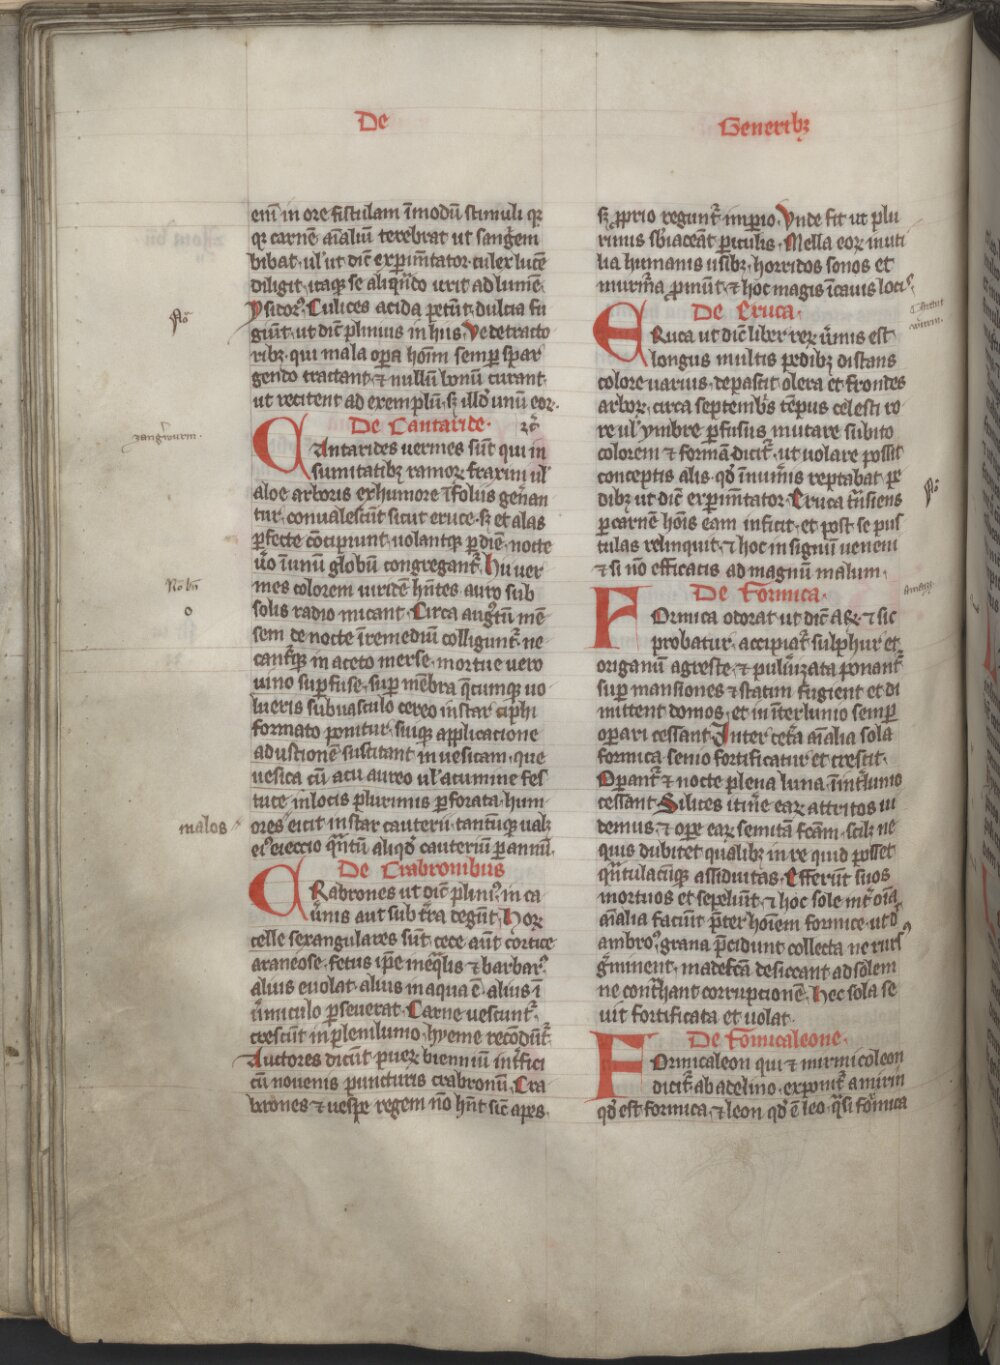 De
Generibꝫ
enī in ore fistulam īmodū stimuli qꝫ
qꝫ carnē aīaliū terebrat ut sangēm
bibat. ul' ut dic̄ experimētator culex lucē
diligit. itaqꝫ se aliqn̄do urit ad lumē.
Ysidorꝰ. Culices acida petūt. dulcia fu
giūt. ut dic̄ plinius in hiis. Ve detracto
ribꝫ. qui mala opera hoīm semp spar
gendo tractant. ⁊ nullū bonū curant
ut recitent ad exemplū. sꝫ illd' unū eoꝝ.
De Cantaride. ⁊c̄
CAntarides uermes sūt qui in
sumitatibꝫ ramoꝝ fraxini ul'
aloe arboris ex humore ⁊ foliis gn̄an
tur. conualescūt sicut eruce. sꝫ et alas
ꝑfecte cōcipiunt. uolantqꝫ ꝑ diē. nocte
ūo ī unū globū congregant᷑. Hii uer
mes colorem uiridē hn̄tes auro sub
solis radio micant. Circa augᵘtū mē
sem de nocte ī remediū colligunt᷑. ne
cant᷑qꝫ in aceto merse. mortue uero
uino suꝑfuse. suꝑ mēbra q̄cumqꝫ uo
lueris sub uasculo cereo instar ciphi
formato ponitur. suiqꝫ applicacione
adustionē suscitant in uesicam. que
uesica cū acu aureo ul' acumine fes
tuce in locis plurimis ꝑforata. hum
ores eicit instar cauterii. tantūqꝫ ualꝫ
eiꝰ eieccio qn̄tū aliqd' cauteriū ꝑ annū.
De Crabronibus
CRabrones ut dic̄ pliniꝰ. in ca
ūnis aut sub tr̄a degūt. Hoꝝ
celle sexangulares sūt. cece aūt cortice
araneose. fetus ip̄e ineq̄lis ⁊ barbarꝰ.
alius euolat. alius in aqua ē. alius ī
ūmiculo ꝑseuerat. Carne uescunt᷑.
crescūt in plenilunio. hyeme recōdūt᷑.
Auctores dicūt pueꝝ bienniū int᷑fici
cū nouenis puncturis crabronū. Cra
brones ⁊ uespe regem nō hn̄t sic̄ apes.
sꝫ ꝓprio regunt᷑ imperio. Vnde fit ut plu
rimus sbiaceāt periculis. Mella eoꝝ inuti
lia humanis usibꝫ. horridos sonos et
murm̄a ꝓmūt. ⁊ hoc magis ī cauis locis.
De Eruca.
ERuca ut dic̄ liber reꝝ. ūmis est
longus multis pedibꝫ distans
colore uarius. depascit olera et frondes
arboꝝ. circa septembr̄s tēpus celesti ro
re ul' ymbre ꝑfusus mutare subito
colorem ⁊ formā dicit᷑. ut uolare possit
conceptis alis. qd' ī inūnis reptabat pe
dibꝫ ut dic̄ experimētator. Eruca trāsiens
ꝑ carnē hoīs eam inficit. et post se pus
tulas relinquit. ⁊ hoc in signū ueneni
⁊ si nō efficacis ad magnū malum.
De Formica.
FOrmica odorat ut dic̄ A&. ⁊ sic
probatur. accipiat᷑ sulphur et
origanū agreste. ⁊ puluizata ponant᷑
suꝑ mansiones ⁊ statim fugient et di
mittent domos. et in īterlunio semp
oꝑari cessant. Inter cetā aīalia sola
formica senio fortificatur et crescit.
Oꝑant᷑ ⁊ nocte plena luna. ī int᷑lunio
cessant. Silices itin̄e eaꝝ attritos ui
demus. ⁊ oꝑe eaꝝ semitā fcām. scilꝫ ne
quis dubitet qualibꝫ in re quid posset
qn̄tulacūqꝫ assiduitas. Efferūt suos
mortuos et sepeliūt. ⁊ hoc sole int᷑ oīa
aīalia faciūt p̄ter hoīem formice. ut d'
ambroꝰ. grana p̄cidunt collecta ne rursꝰ
ḡminent. madefcā desiccant ad solem
ne cont᷑hant corrupcionē. Hec sola se
uit fortificata et uolat.
De Formicaleone.
FOrmicaleon qui ⁊ mirmicoleon
dicit᷑. ab adelino. exponit᷑ a mirin
qd' est formica. ⁊ leon qd' ē leo. q̄si formica
malos